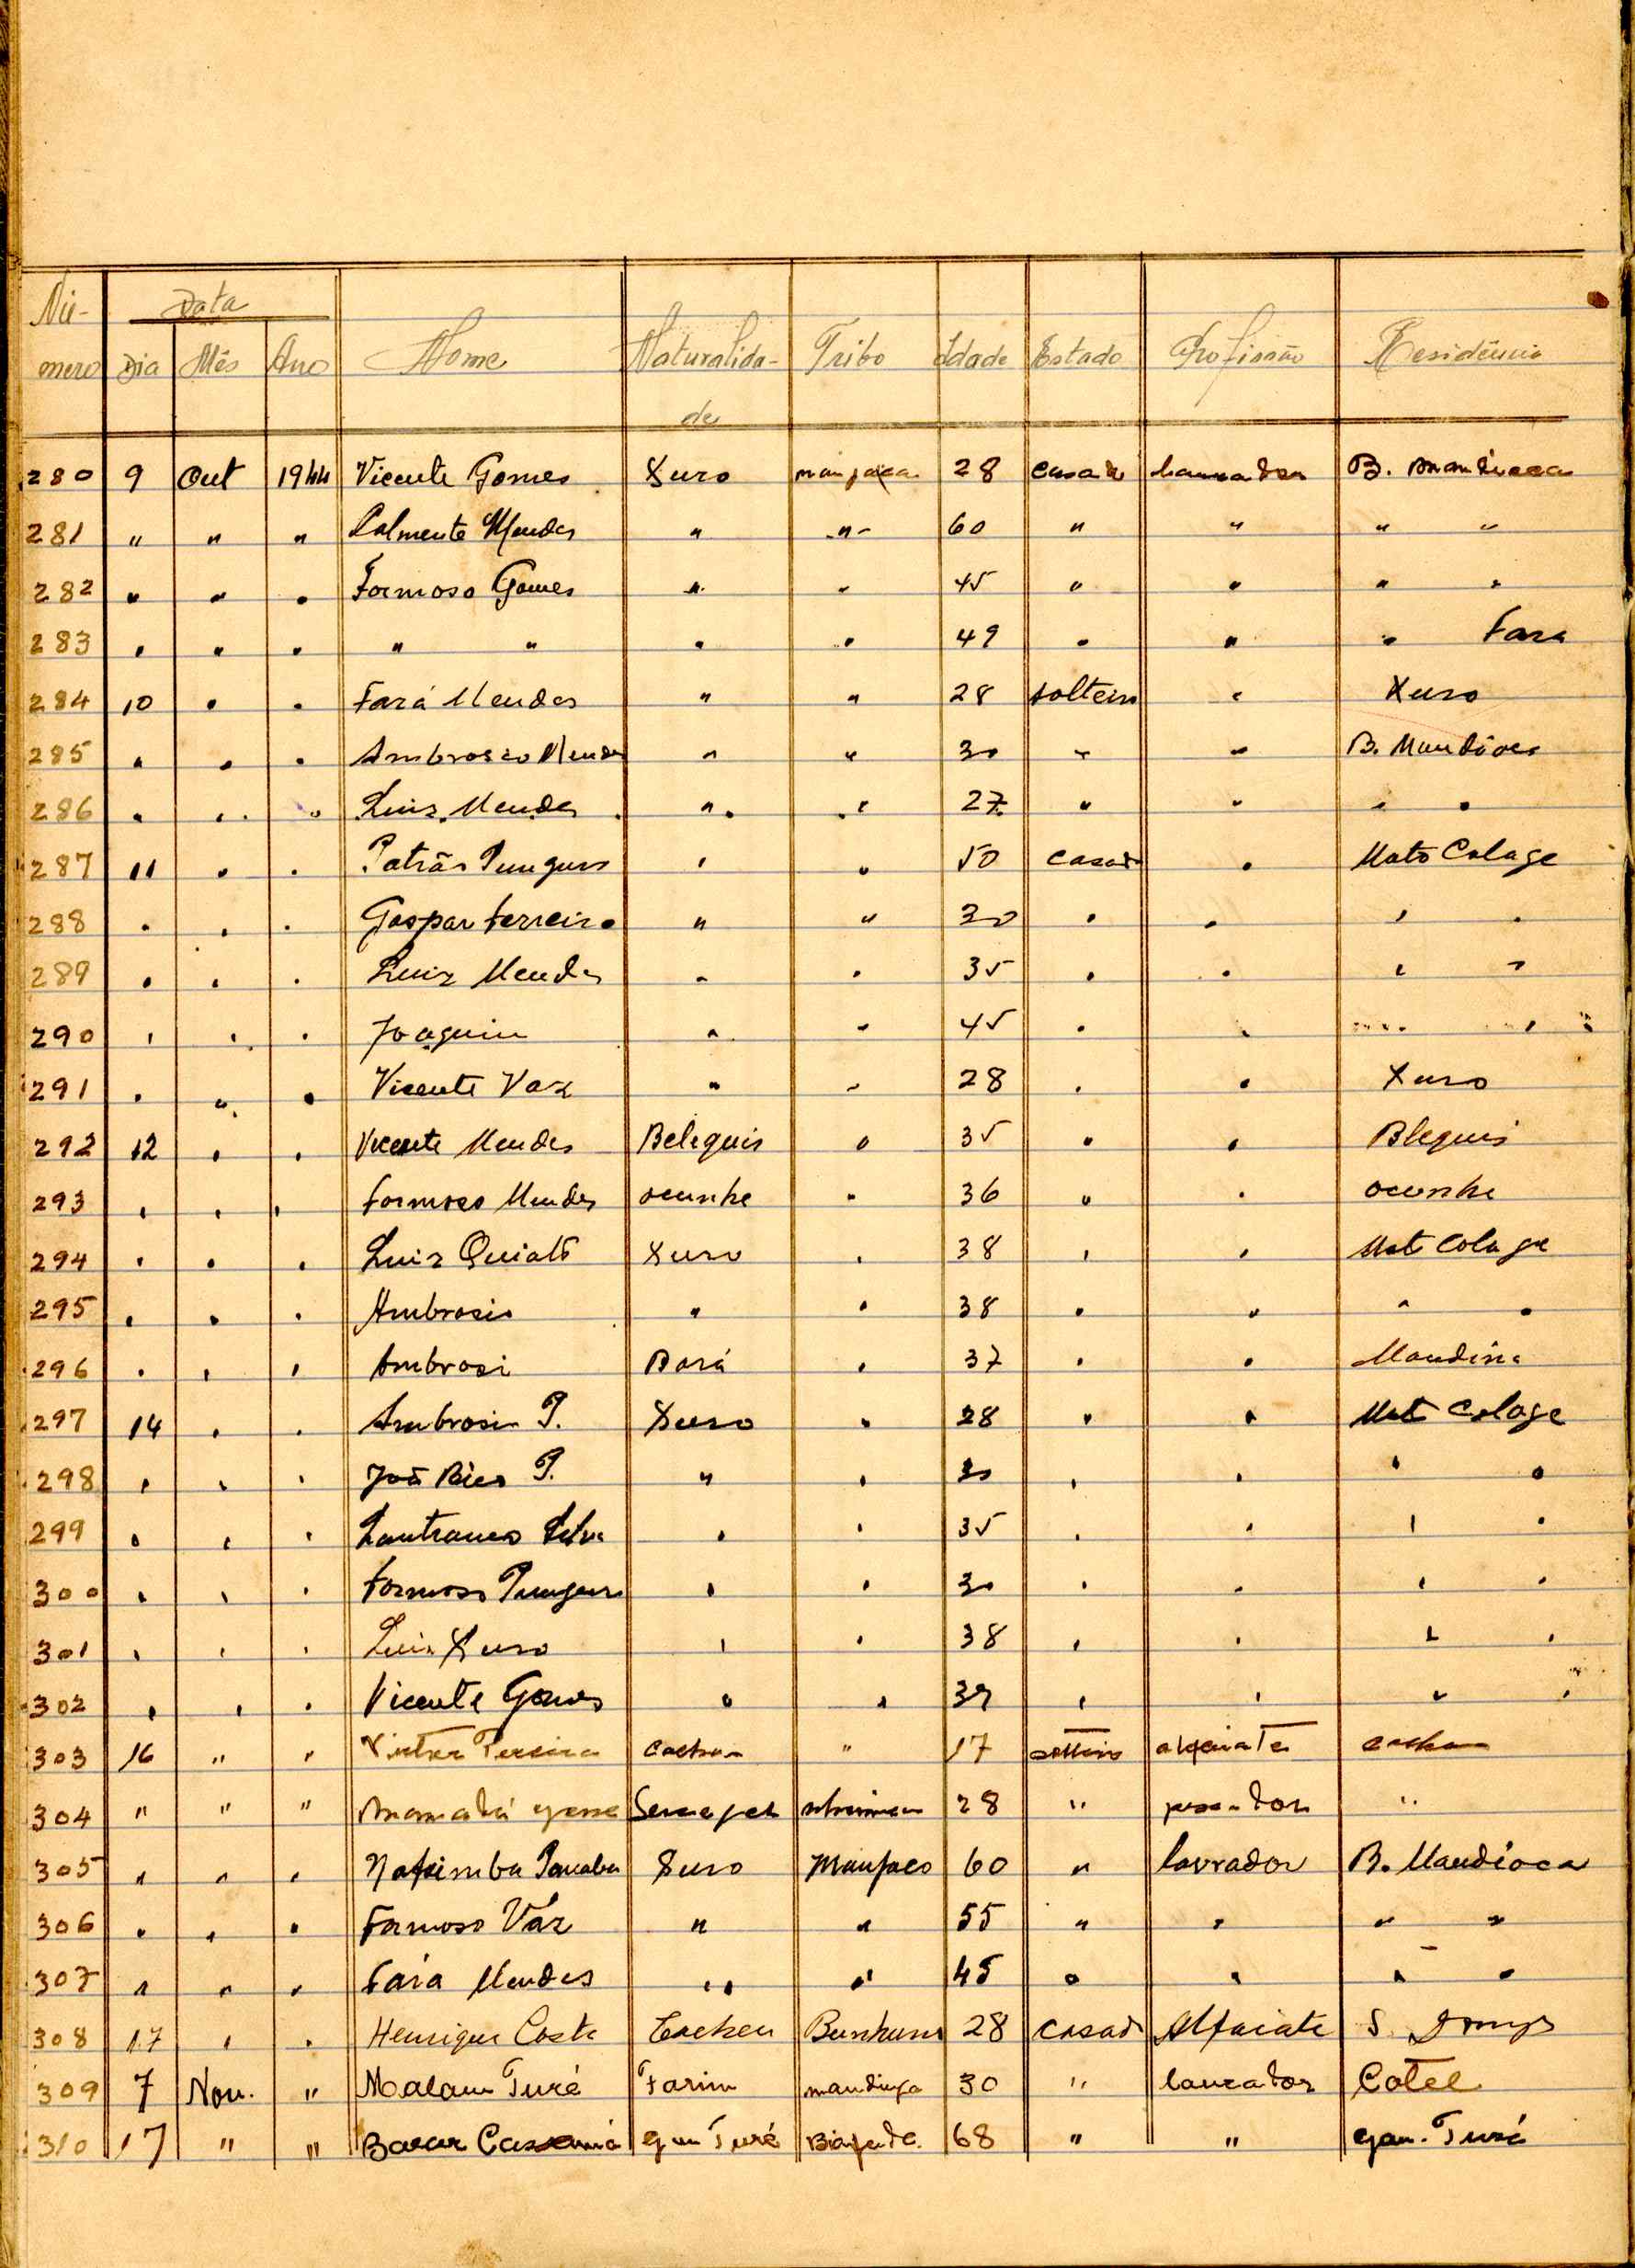 Nú- Data
mero Dia Mês Ano Nome Naturalida- Tribo Idade Estado Profissão Residência
de
280 9 Out 1944 Vicente Gomes Xuro manjaca 28 casado lavrador B. Mandioca
281 " " " Mendes " " 60 " " " "
282 " " " Formoso Gomes " " 45 " " " "
283 " " " " " " " 49 " " " Fara
284 10 " " Fará Mendes " " 28 solteiro " Xuro
285 " " " Ambrosio Mendes " " 30 " " B. Mandioca
286 " " " Luiz Mendes " " 27 " " " "
287 11 " " Patrão Pungura " " 50 casado " Mato Colage
288 " " " Gaspar Ferreira " " 30 " " " "
289 " " " Luiz Mendes " " 35 " " " "
290 " " " Joaquim " " 45 " " " "
291 " " " Vicente Vaz " " 28 " " Xuro
292 12 " " Vicente Mendes Beleguis " 35 " " Bleguis
293 " " " Formoso Mendes ocunhe " 36 " " ocunhe
294 " " " Luiz Quiato Xuro " 38 " " Mato Colage
295 " " " Ambrosio " " 38 " " " "
296 " " " Ambrosi Bará " 37 " "
297 14 " " Ambrosio P. Xuro " 28 " " Mato Colage
298 " " " João P. " " " " " "
299 " " " Silva " " 35 " " " "
300 " " " Formoso Pungura " " 30 " " " "
301 " " " Luiz Xuro " " 38 " " " "
302 " " " Vicente Gomes " " 39 " " " "
303 16 " " Victor Pereira Cacheu " 17 solteiro alfaiate cacheu
304 " " " 28 " pescador "
305 " " " Xuro Manjaco 60 " lavrador B. Mandioca
306 " " " Formoso Váz " " 55 " " " "
307 " " " Fára Mendes " " 45 " " " "
308 17 " " Henrique Costa Cacheu Banhum 28 casado Alfaiate S. Domgs
309 7 Nov. " Malam Turé Farim mandinga 30 " lavrador Cotel
310 17 " " Bacar Cassamá gan Turé Biafada 68 " " gan. Turé